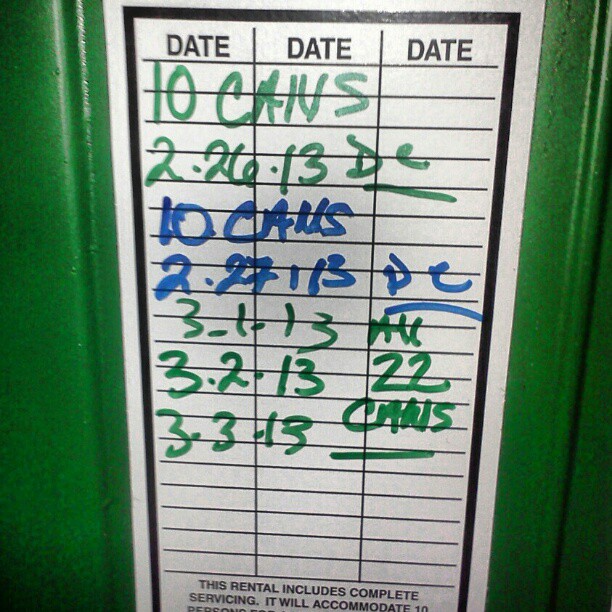 DATE DATE DATE
10 CANS
2.26.13 DC
10 CANS
2.27.13 DC
3-1-13 All
3.2.13 22
3.3.13 CANS
THIS RENTAL INCLUDES COMPLETE
SERVICING. IT WILL ACCOMMODATE 10